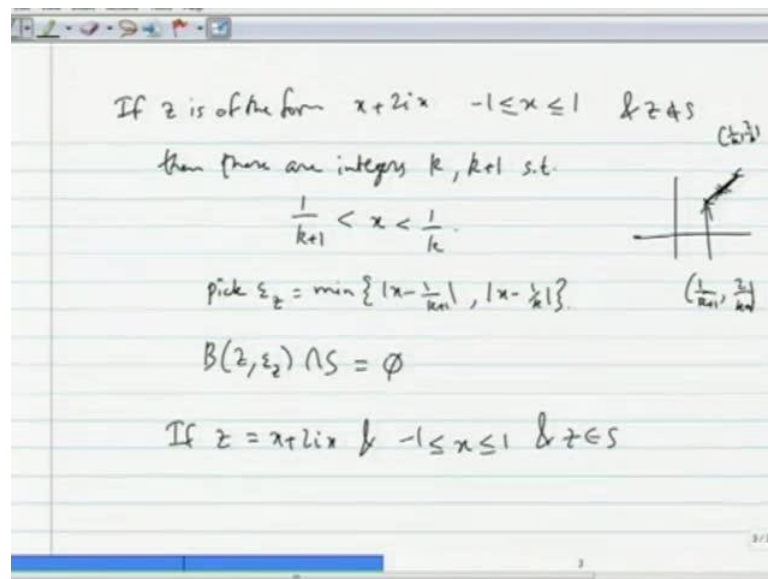 If z is of the form x+2ix -1≤x≤1 & z∉S
then there are integers k, k+1 s.t.
1/(k+1) < x < 1/k.
(1/k, 2/k)
pick ε_z = min{|x-1/(k+1)|, |x-1/k|}.
(1/(k+1), 2/(k+1))
B(z, ε_z) ∩ S = ∅
If z = x+2ix & -1≤x≤1 & z∈S
3